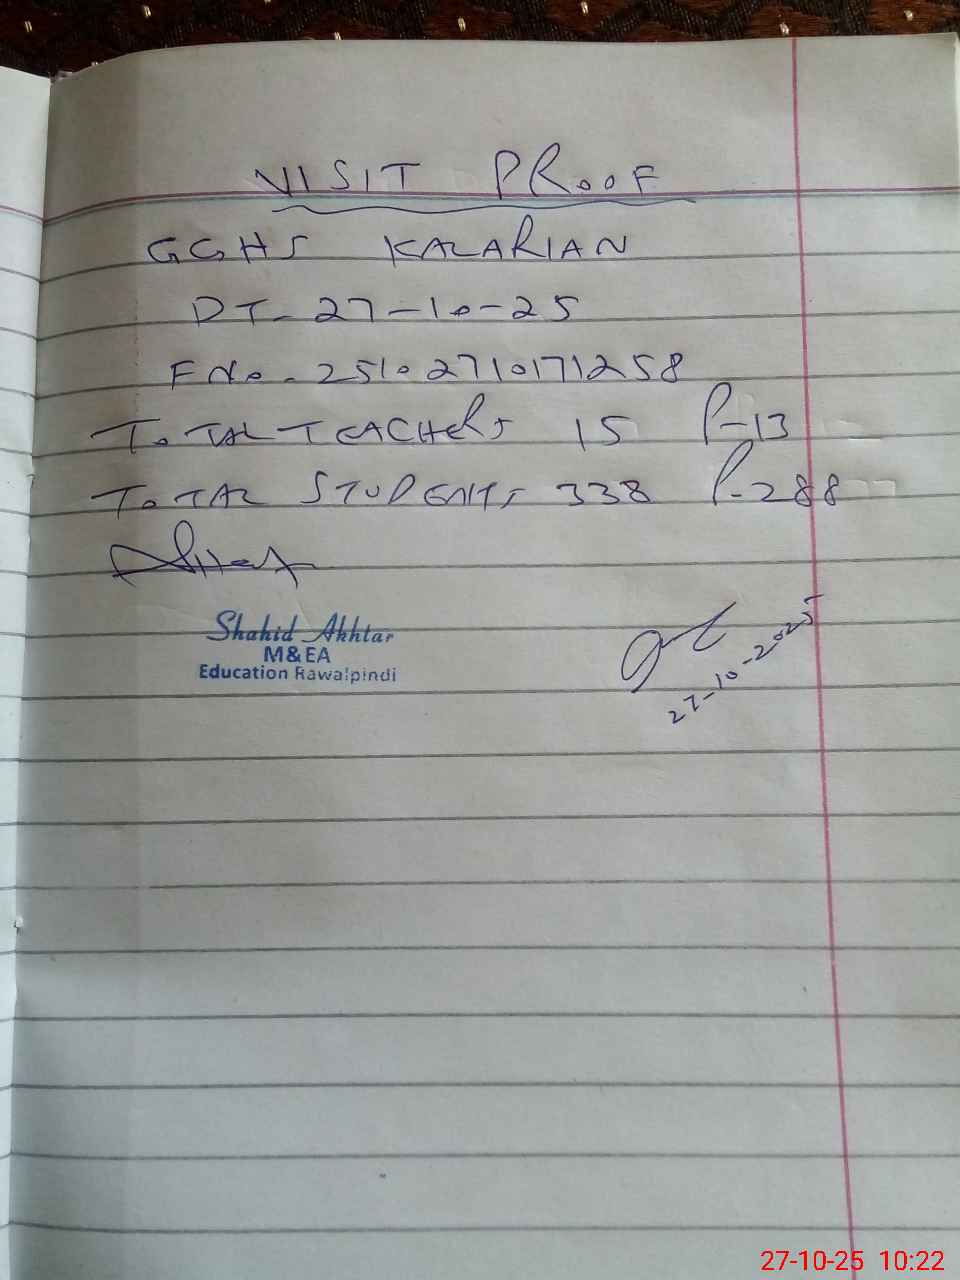 VISIT PROOF
GGHS KALARIAN
DT- 27-10-25
F No. 2510271017 1258
TOTAL TEACHERS 15 P-13
TOTAL STUDENTS 338 P-288
Shahid Akhtar
M&EA
Education Rawalpindi
27-10-2025
27-10-25 10:22